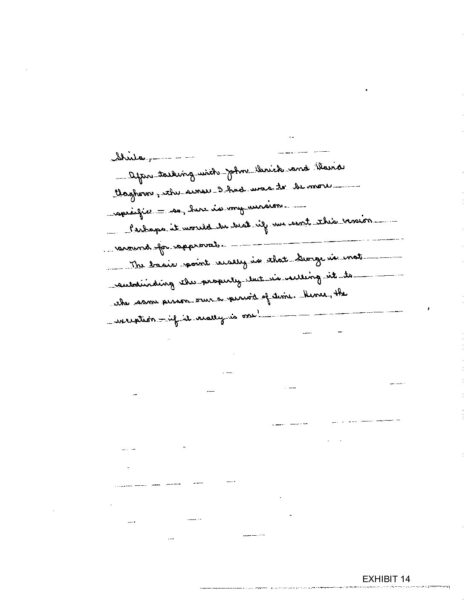 Sheila,
After talking with John and David
, the sense I had was to be more
specific - so, here is my version.
Perhaps it would be best if we sent this version
around for approval.
The basic point really is that George is not
subdividing the property but is selling it to
the same person over a period of time. Hence, the
exception - if it really is one!
EXHIBIT 14